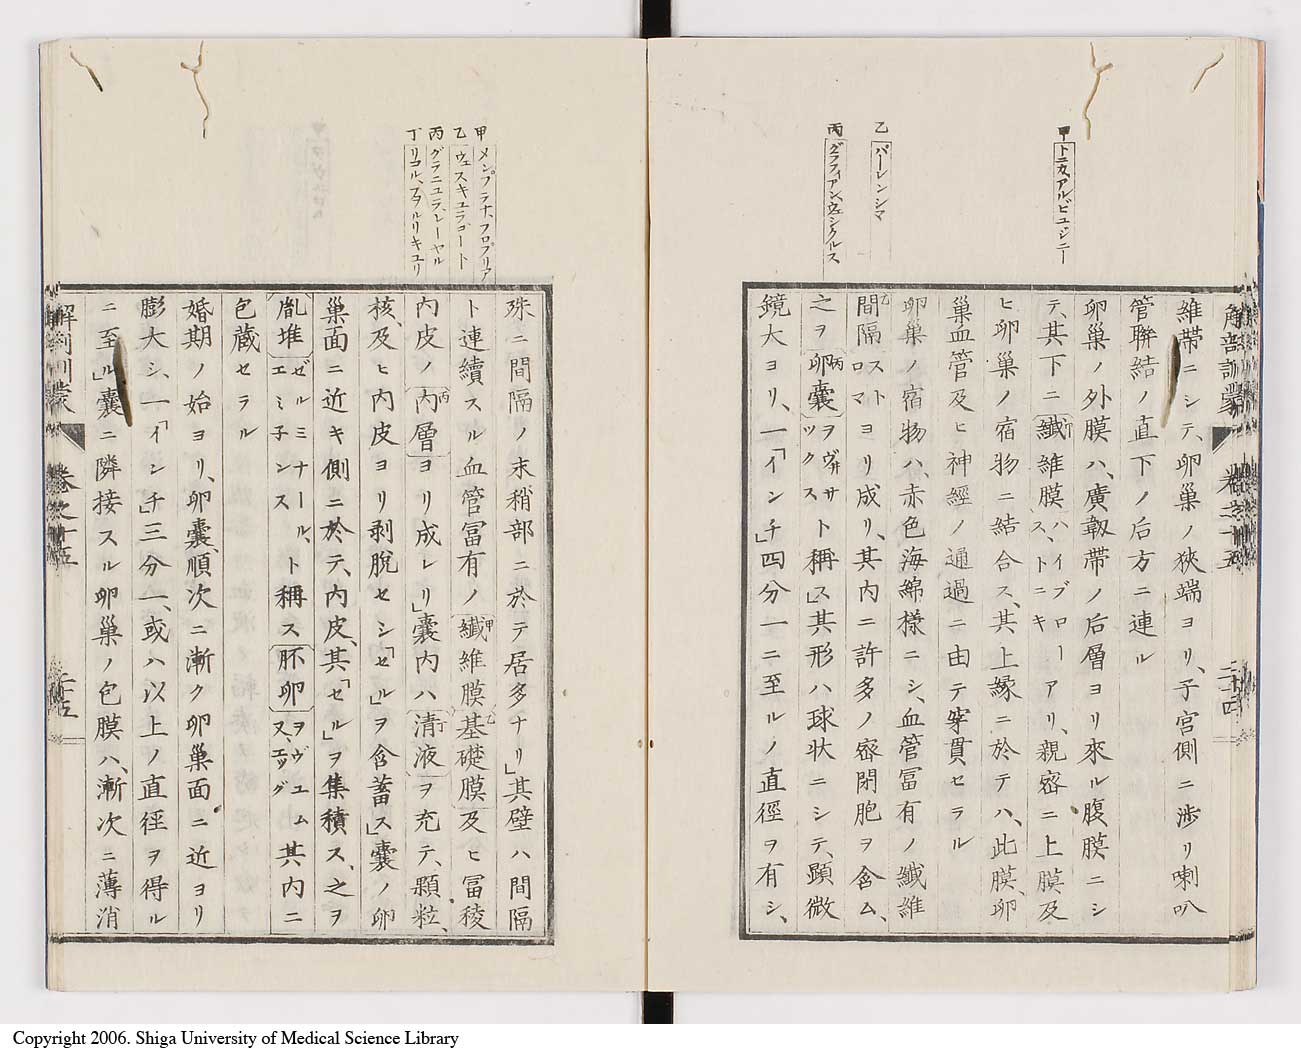 甲 トニカアルビュジニー
乙 パーレンシマ
丙 グラフィアンヴェシクルス
維帶ニシテ、卵巢ノ狹端ヨリ、子宮側ニ渉リ喇叭
管聯結ノ直下ノ后方ニ連ル
卵巢ノ外膜ハ、廣韌帶ノ后層ヨリ來ル腹膜ニシ
テ、其下ニ纎維膜ハイブローストニキアリ、親密ニ上膜及
ヒ卵巢ノ宿物ニ結合ス、其上縁ニ於テハ、此膜、卵
巢血管及ヒ神經ノ通過ニ由テ穿貫セラル
卵巢ノ宿物ハ、赤色海綿樣ニシ、血管冨有ノ纎維
間隔ストロマヨリ成リ、其内ニ許多ノ密閉胞ヲ含ム、
之ヲ卵囊ヲヴサックスト稱ス」其形ハ球状ニシテ、顕微
鏡大ヨリ、一「インチ」四分一ニ至ルノ直徑ヲ有シ、
卷之十五
甲 メンブラナ、プロプリア
乙 ウェスキュラコート
丙 グラニュラ、レーヤル
丁 リコル、フヲルリキュリ
殊ニ間隔ノ末稍部ニ於テ居多ナリ」其壁ハ間隔
ト連續スル血管冨有ノ纎維膜基礎膜及ヒ冨稜
内皮ノ内層ヨリ成レリ」囊内ハ清液ヲ充テ、顆粒、
核、及ヒ内皮ヨリ剥脱セシ「セル」ヲ含蓄ス」囊ノ卵
巢面ニ近キ側ニ於テ、内皮、其「セル」ヲ集積ス、之ヲ
胤堆ゼルミナール、エミ子ンスト稱ス胚卵ヲヴュム又エッグ其内ニ
包藏セラル
婚期ノ始ヨリ、卵囊、順次ニ漸ク卵巢面ニ近ヨリ
膨大シ、一「インチ」三分一、或ハ以上ノ直徑ヲ得ル
ニ至ル」囊ニ隣接スル卵巢ノ包膜ハ、漸次ニ薄消
卷之十五